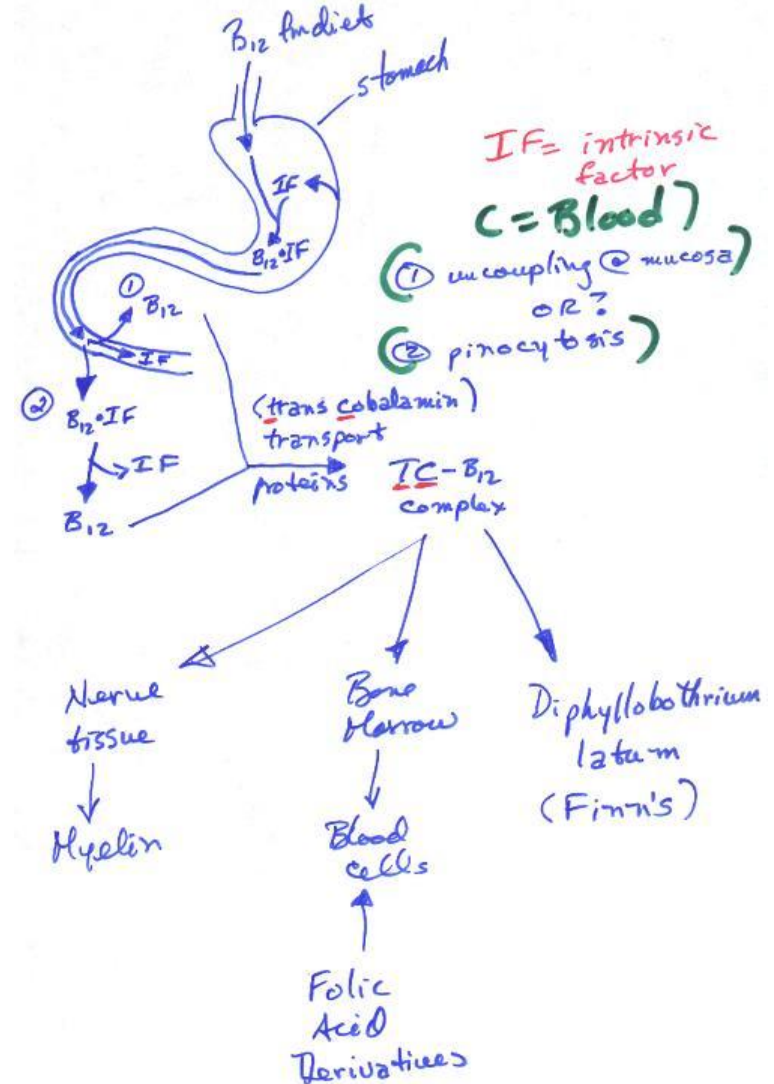 B12 fm diet
stomach
IF
B12•IF
IF = intrinsic
factor
C = Blood)
(① uncoupling @ mucosa)
OR?
(② pinocytosis)
① B12
IF
② B12•IF
IF
B12
(trans cobalamin)
transport
proteins
TC-B12
complex
Nerve
tissue
Myelin
Bone
Marrow
Blood
cells
Folic
Acid
Derivatives
Diphyllobothrium
latum
(Finn's)